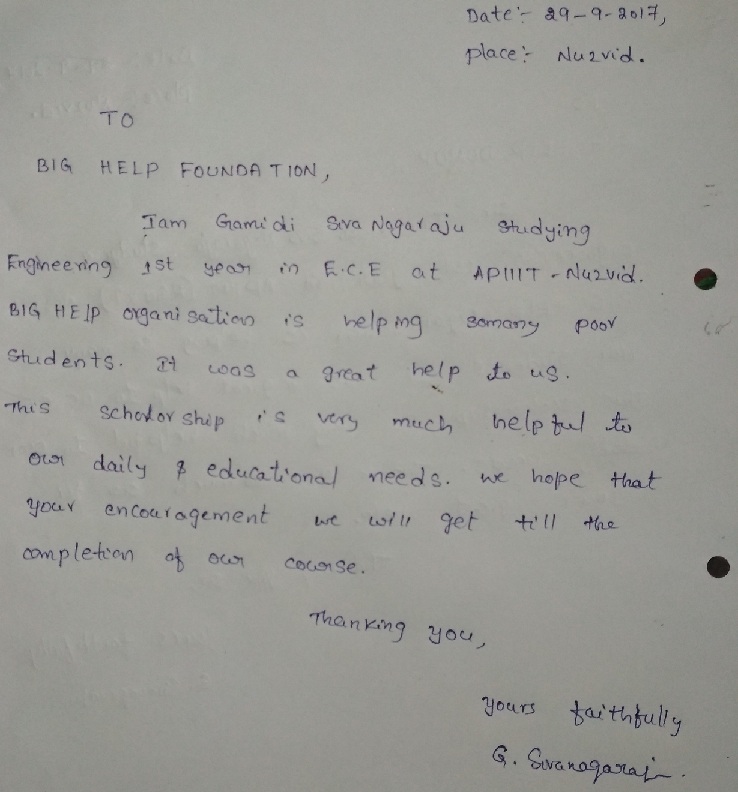 Date:- 29-9-2017,
place:- Nuzvid.
TO
BIG HELP FOUNDATION,
Iam Gamidi Siva Nagaraju studying
Engineering 1st year in E.C.E at APIIIT - Nuzvid.
BIG HElp organisation is helping somany poor
Students. It was a great help to us.
This scholorship is very much helpful to
our daily & educational needs. we hope that
your encouragement we will get till the
completion of our course.
Thanking you,
yours faithfully
G. Sivanagaraju.